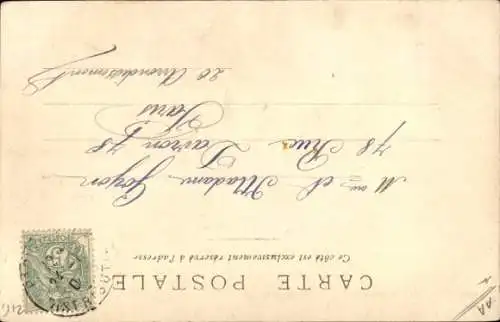 CARTE POSTALE
Ce côté est exclusivement réservé à l'adresse
M et Madame Goyon
78 Rue Davron 78
Paris
20 Arrondissement